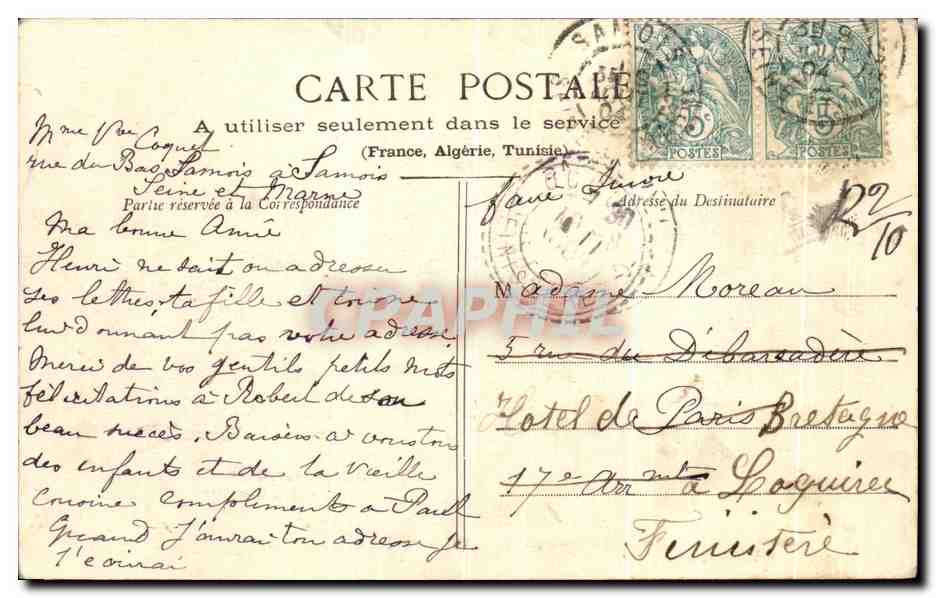 CARTE POSTALE
A utiliser seulement dans le service
(France, Algérie, Tunisie)
Mme Vve Coquet
rue du Bas Samois à Samois
Seine et Marne
Partie réservée à la Correspondance
Adresse du Destinataire
faire suivre
R 2/10
SAMOIS
5c
POSTES
5c
POSTES
Ma bonne Amie
Henri ne sait ou adresser
ses lettres, ta fille et
lui donnant pas votre adresse
Merci de vos gentils petits mots
félicitations à Robert de son
beau succès. Baisers à vous tous
des enfants et de la vieille
cousine compliments à Paul
Quand j'aurai ton adresse je
t'écrirai
Madame Moreau
5 rue du Débarcadère
Hotel de Paris Bretagne
17e Arrmt à Loquirec
Finistère
CPAPHIL